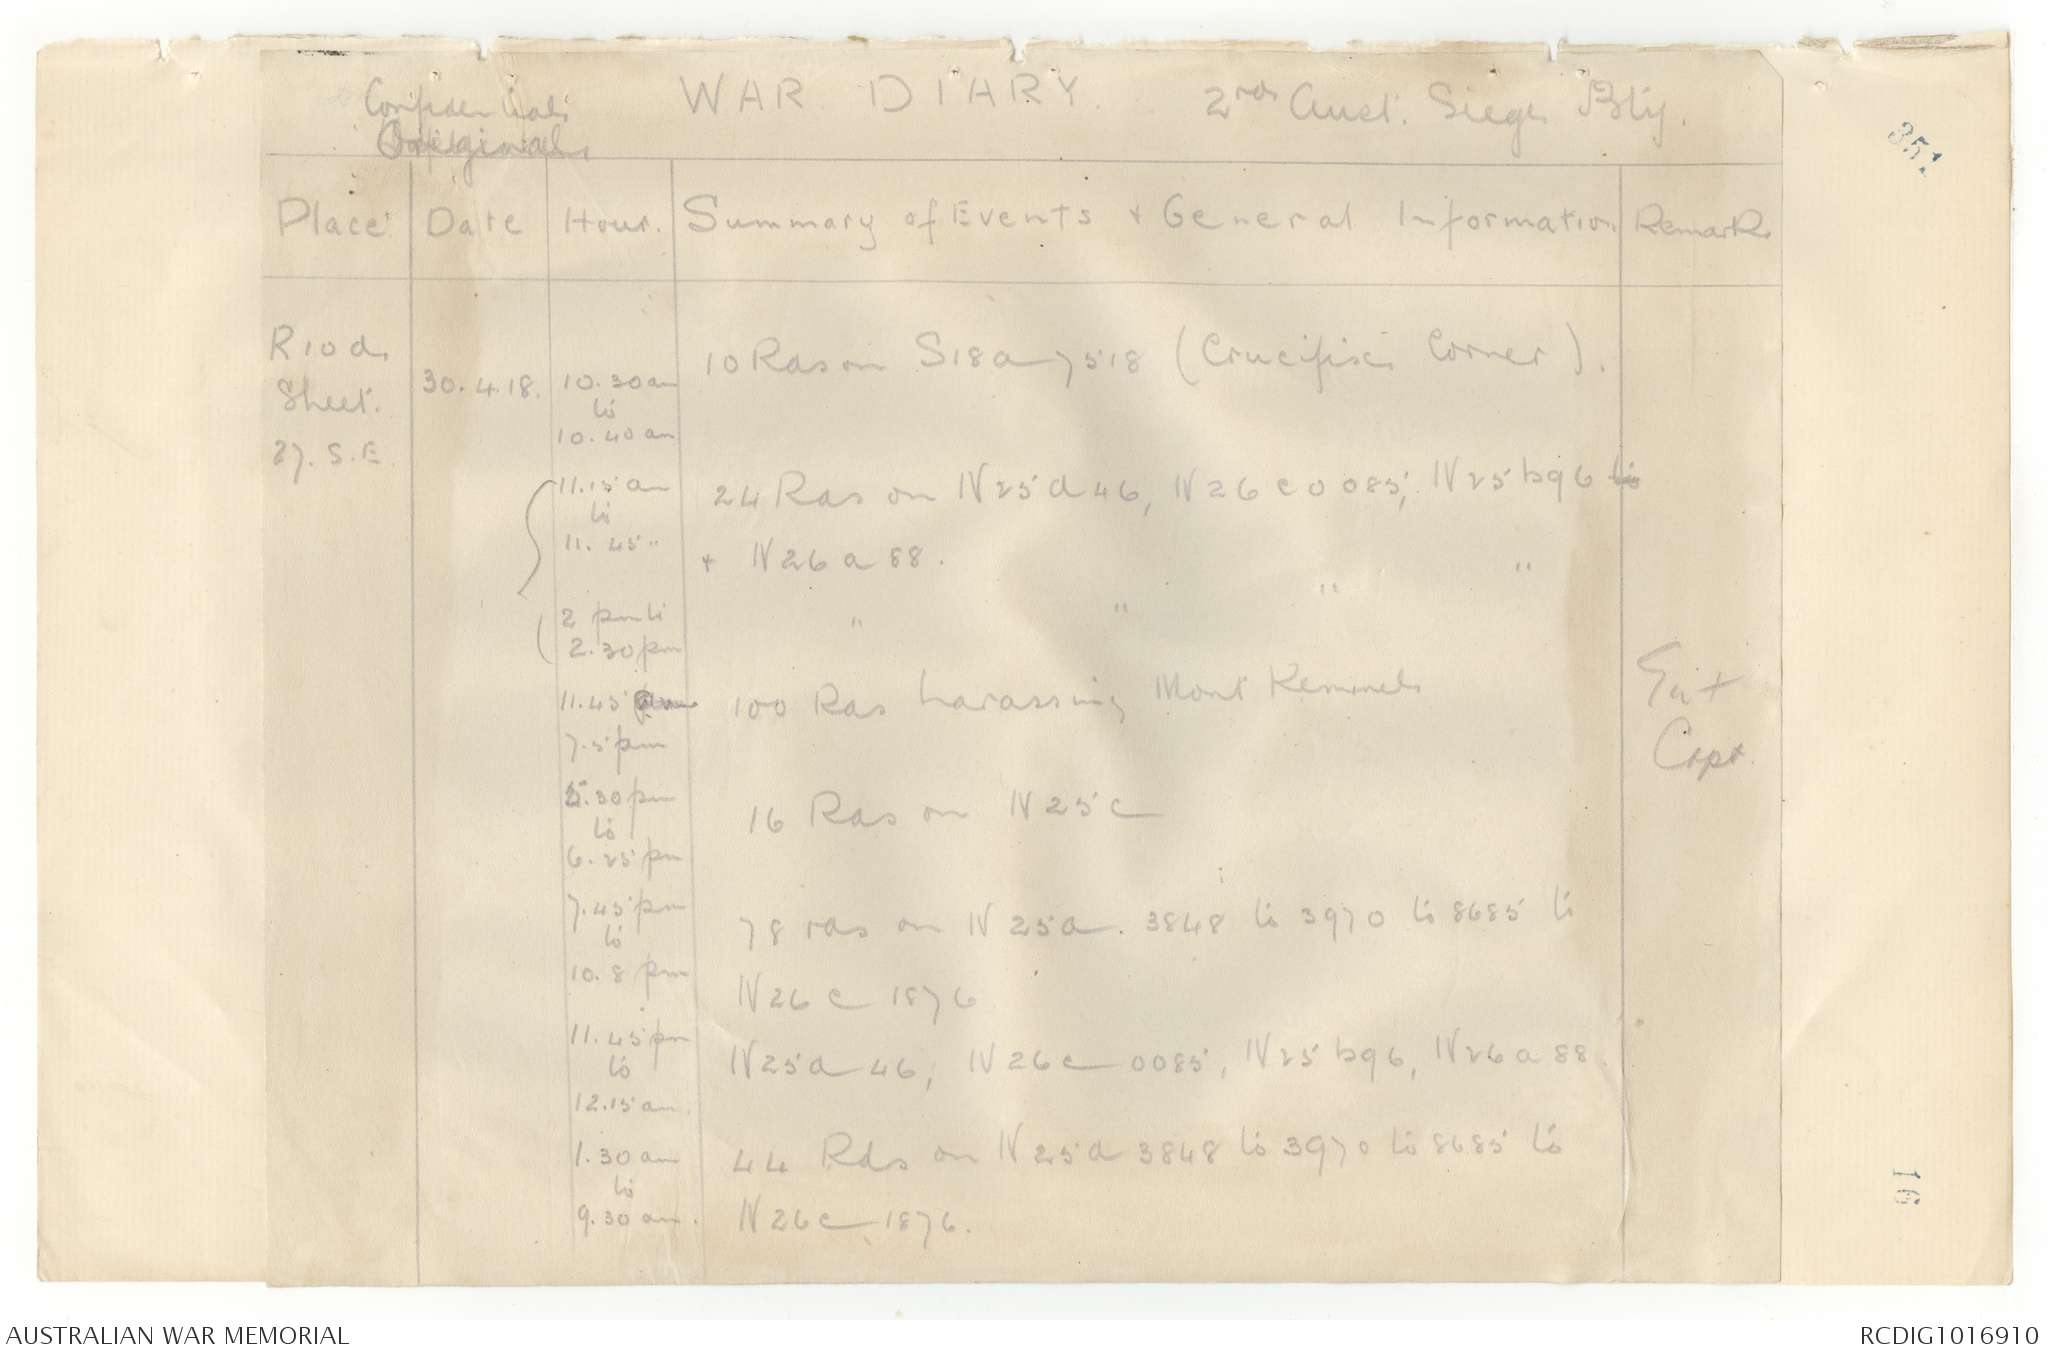 Confidential
Original
WAR DIARY.
2nd Aust. Siege Bty.
351
Place Date Hour. Summary of Events + General Information Remarks
R 10 d.
Sheet.
27. S.E.
30.4.18.
10.30 am
to
10.40 am
10 Rds on S18a 7518 (Crucifix Corner).
11.15 am
to
11.45 "
24 Rds on N25d46, N26c0085, N25b96
+ N26a88.
2 pm to
2.30 pm
" " " "
11.45
7.5 pm
100 Rds harassing Mont Kemmel
Capt.
5.30 pm
to
6.25 pm
16 Rds on N25c
7.45 pm
to
10.8 pm
78 rds on N25a. 3848 to 3970 to 8685 to
N26c 1876
11.45 pm
to
12.15 am.
N25d 46, N26c 0085, N25b96, N26a88.
1.30 am
to
9.30 am.
44 Rds on N25a 3848 to 3970 to 8685 to
N26c 1876.
16
AUSTRALIAN WAR MEMORIAL
RCDIG1016910